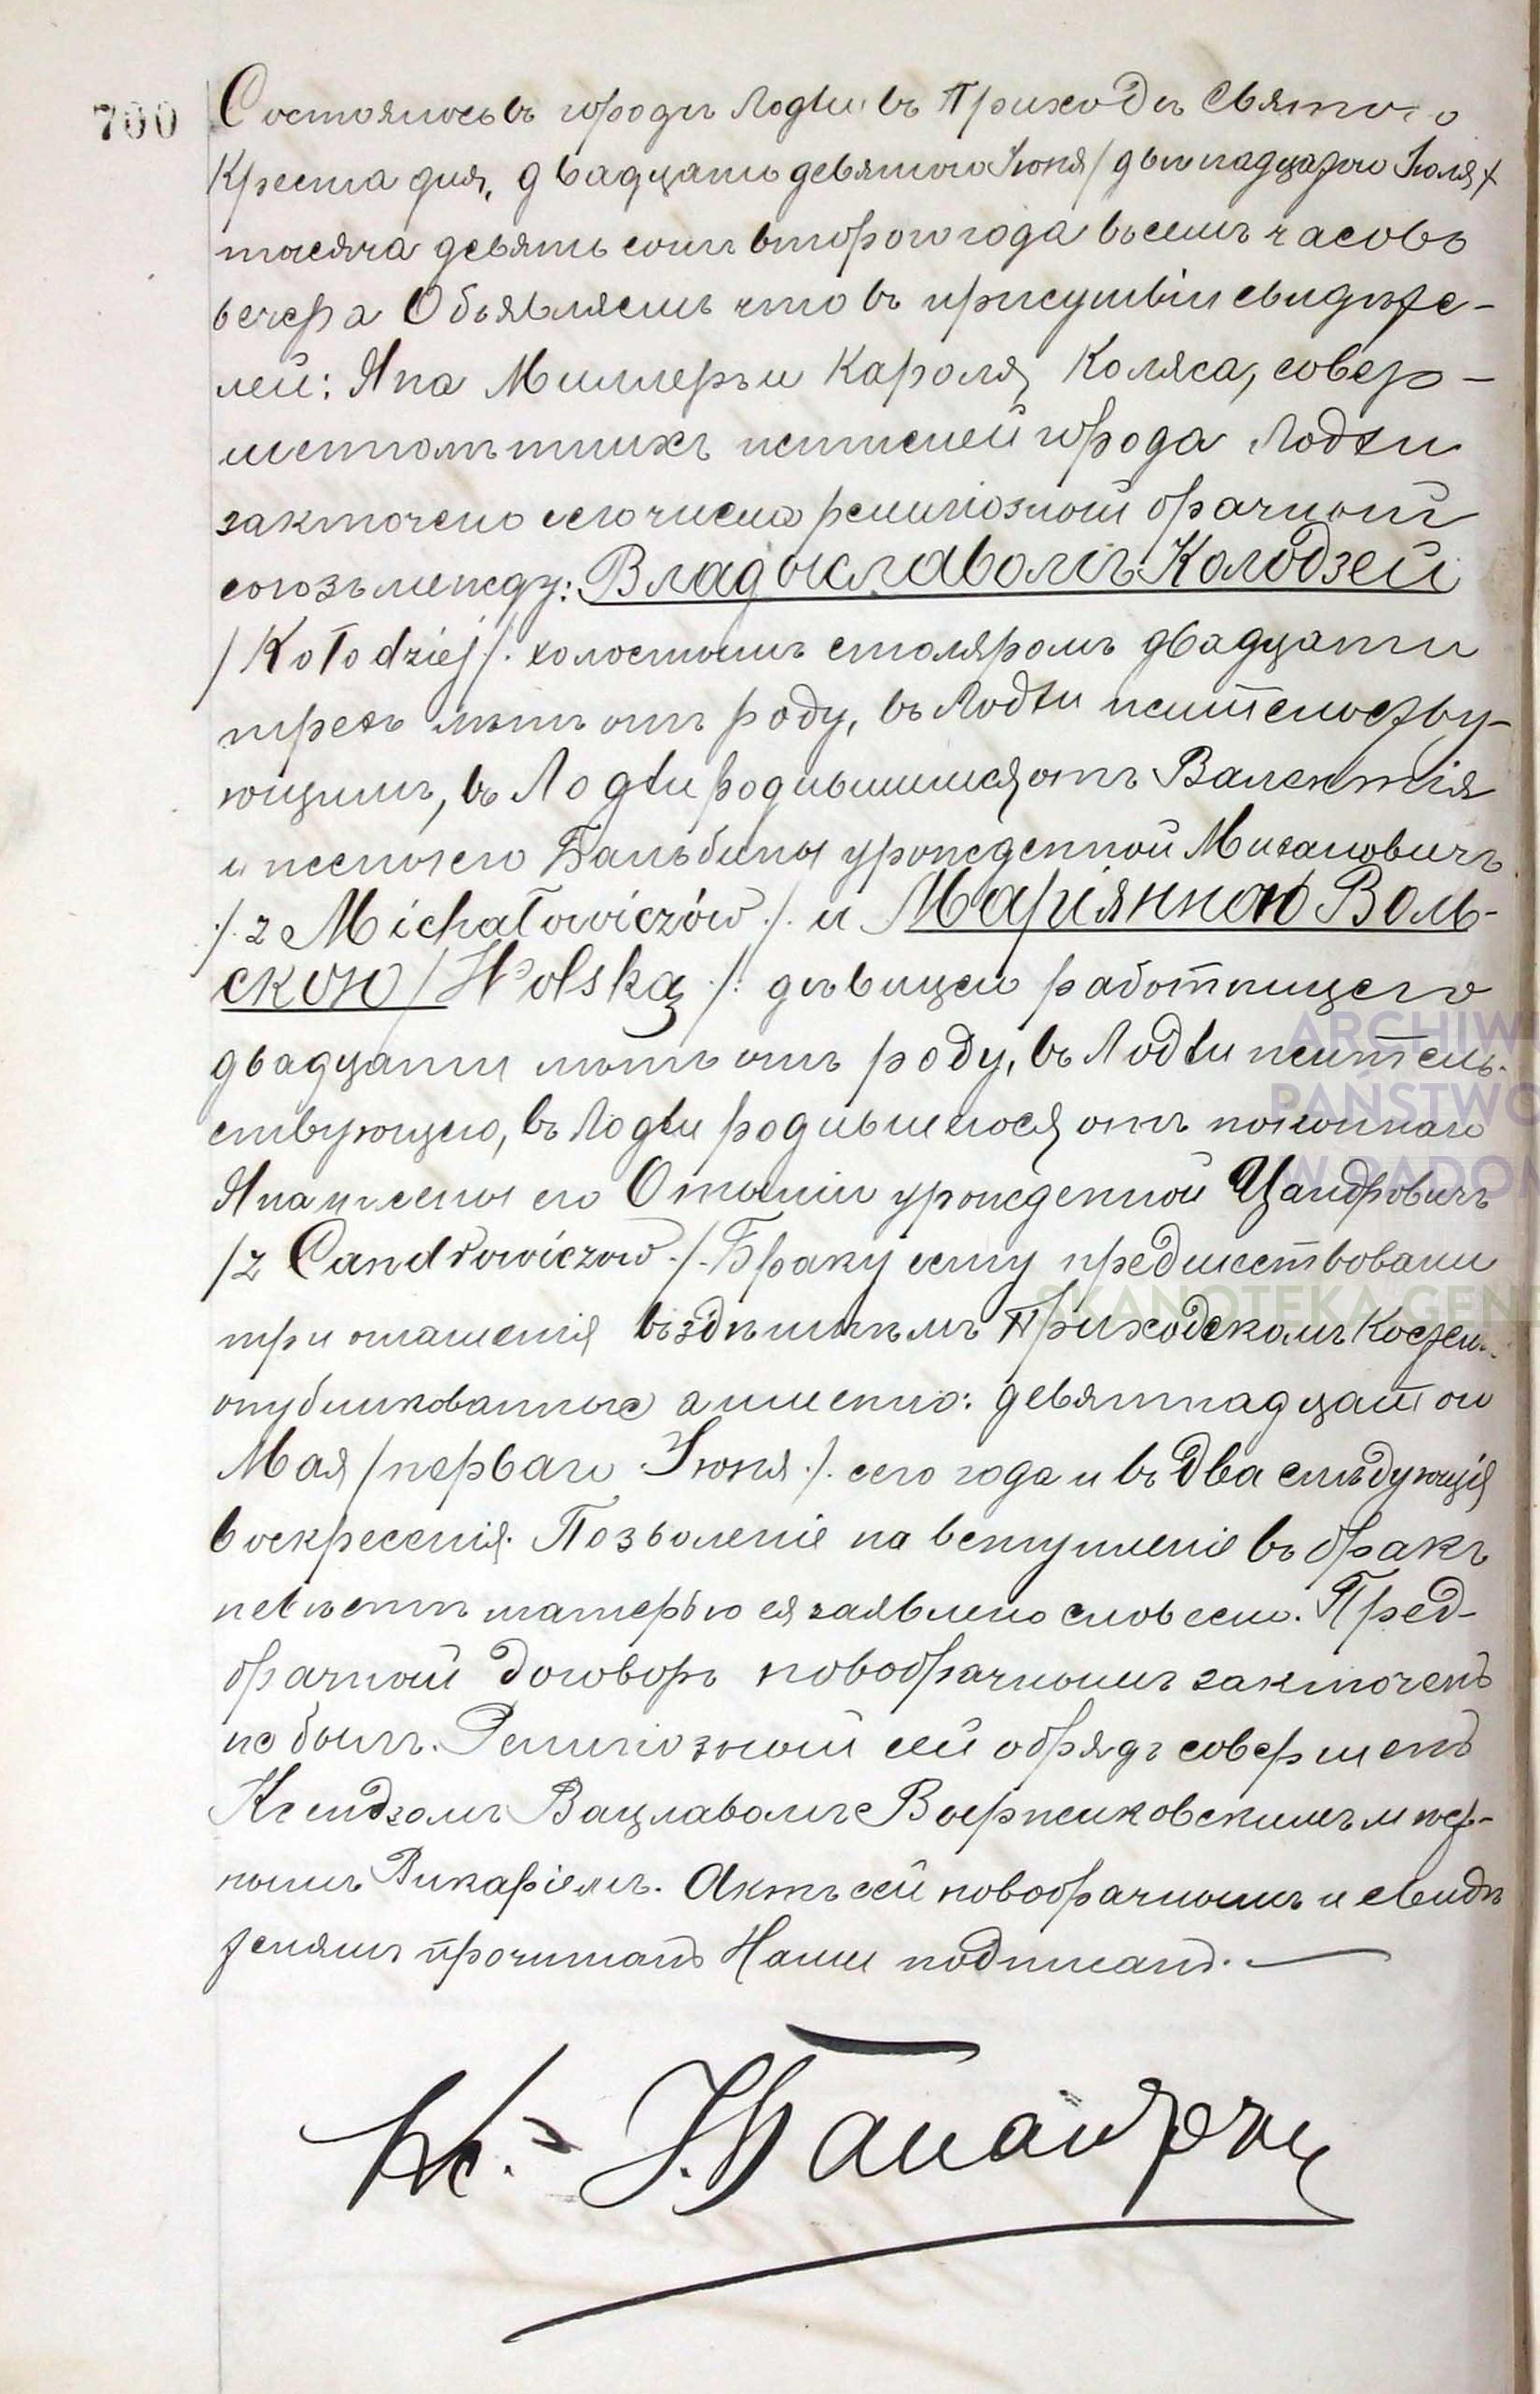 700
Состоялось въ городѣ Лодзи въ Приходѣ Святого
Креста дня, двадцать девятого Іюня /двѣнадцатого Іюля/
тысяча девятьсотъ второго года въ семь часовъ
вечера Объявляемъ что въ присутствіи свидѣте-
лей: Яна Миллеръ и Кароля Коляса, совер-
шеннолѣтнихъ жителей города Лодзи
заключено сего числа религіозный брачный
союзъ между: Владыславомъ Колодзей
/Kołodziej/. холостымъ столяромъ двадцати
трехъ лѣтъ отъ роду, въ Лодзи жительству-
ющимъ, въ Лодзи родившимся отъ Валентія
и жены его Бальбины урожденной Михаловичъ
/. z Michałowiczów ./. и Маріянною Воль-
скою /Wolską ./. дѣвицею работницею
двадцати лѣтъ отъ роду, въ Лодзи житель-
ствующею, въ Лодзи родившеюся отъ покойнаго
Яна и жены его Отыліи урожденной Цандровичъ
/z Candrowiczow ./. Браку сему предшествовали
три оглашенія въ здѣшнемъ Приходскомъ Костелѣ
опубликованные а именно: девятнадцатого
Мая /перваго Іюня ./. сего года и въ два слѣдующія
воскресенія. Позволеніе на вступленіе въ бракъ
невѣстѣ матерью ея заявлено словесно. Пред-
брачный договоръ новобрачными заключенъ
не былъ. Религіозный сей обрядъ совершенъ
Ксендзомъ Вацлавомъ Воержиковскимъ мѣст-
нымъ Викаріемъ. Актъ сей новобрачнымъ и свидѣ
телямъ прочитанъ Нами подписанъ.
Кс.
ARCHIW
PAŃSTWO
W RADOM
SKANOTEKA GEN